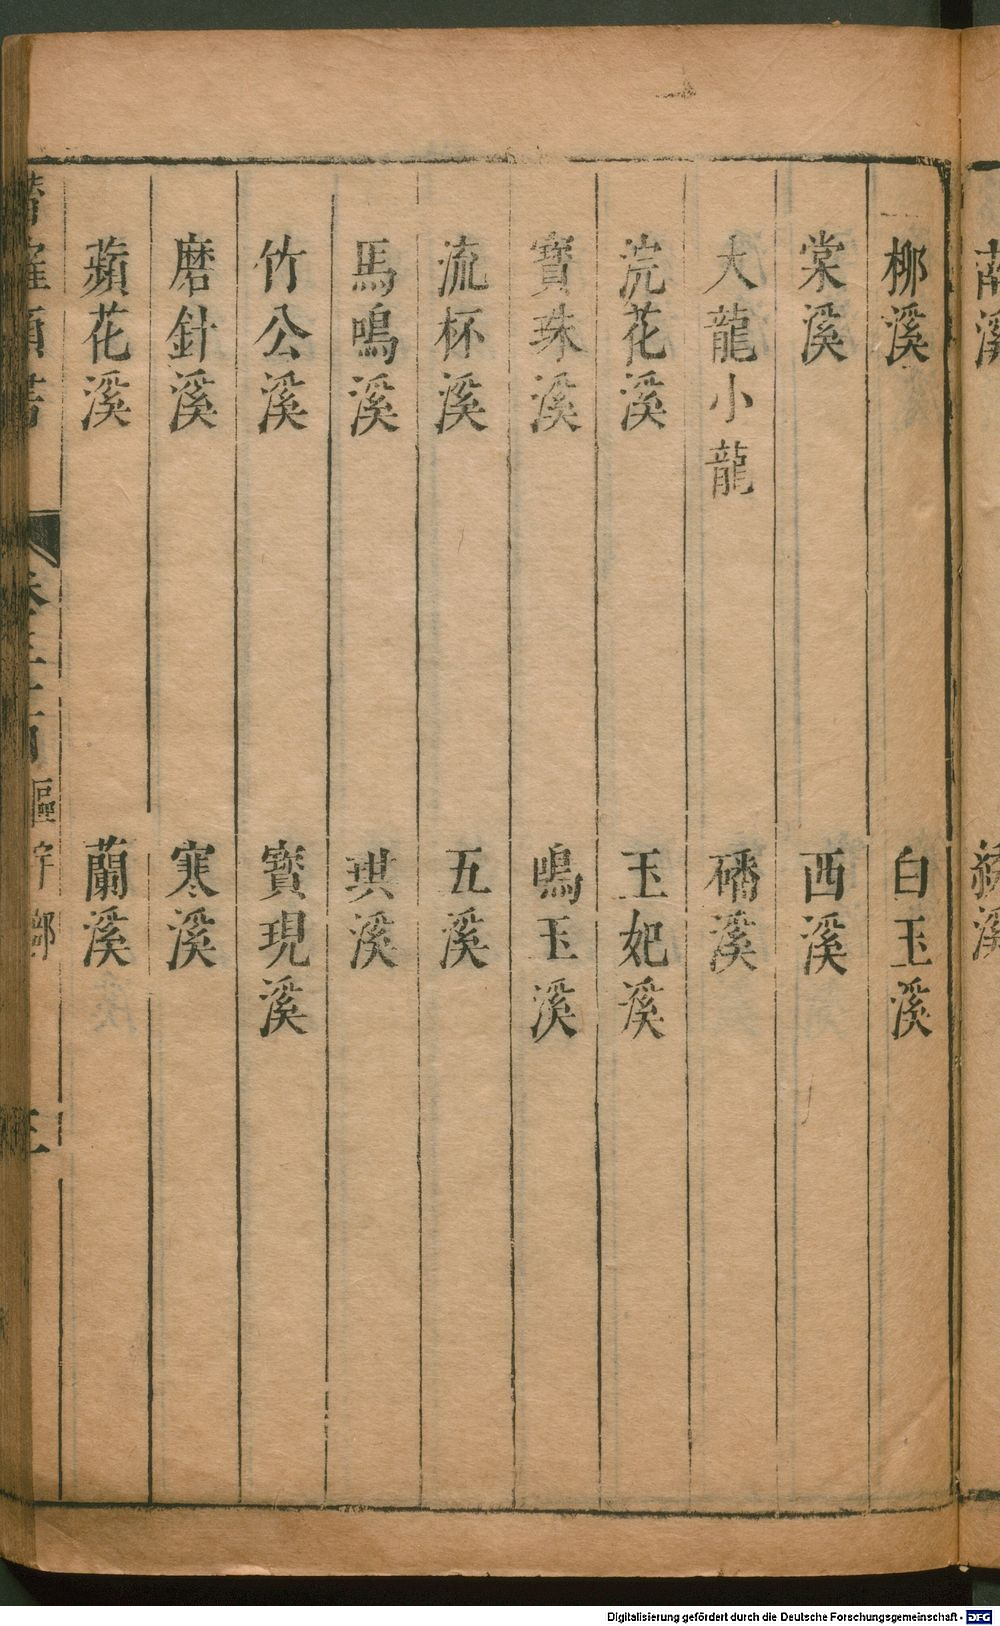 柳溪 白玉溪
棠溪 西溪
大龍小龍 磻溪
浣花溪 玉妃溪
寶珠溪 鳴玉溪
流杯溪 五溪
馬鳴溪 琪溪
竹公溪 寶現溪
磨針溪 寒溪
蘋花溪 蘭溪
Digitalisierung gefördert durch die Deutsche Forschungsgemeinschaft - DFG